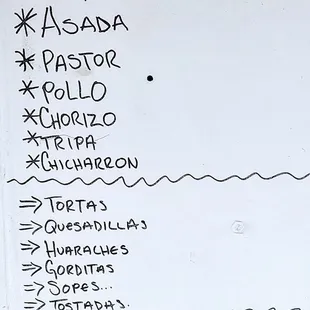 *ASADA
*PASTOR
*POLLO
*CHORIZO
*TRIPA
*CHICHARRON
⇒TORTAS
⇒QUESADILLAS
⇒HUARACHES
⇒GORDITAS
⇒SOPES...
⇒TOSTADAS.